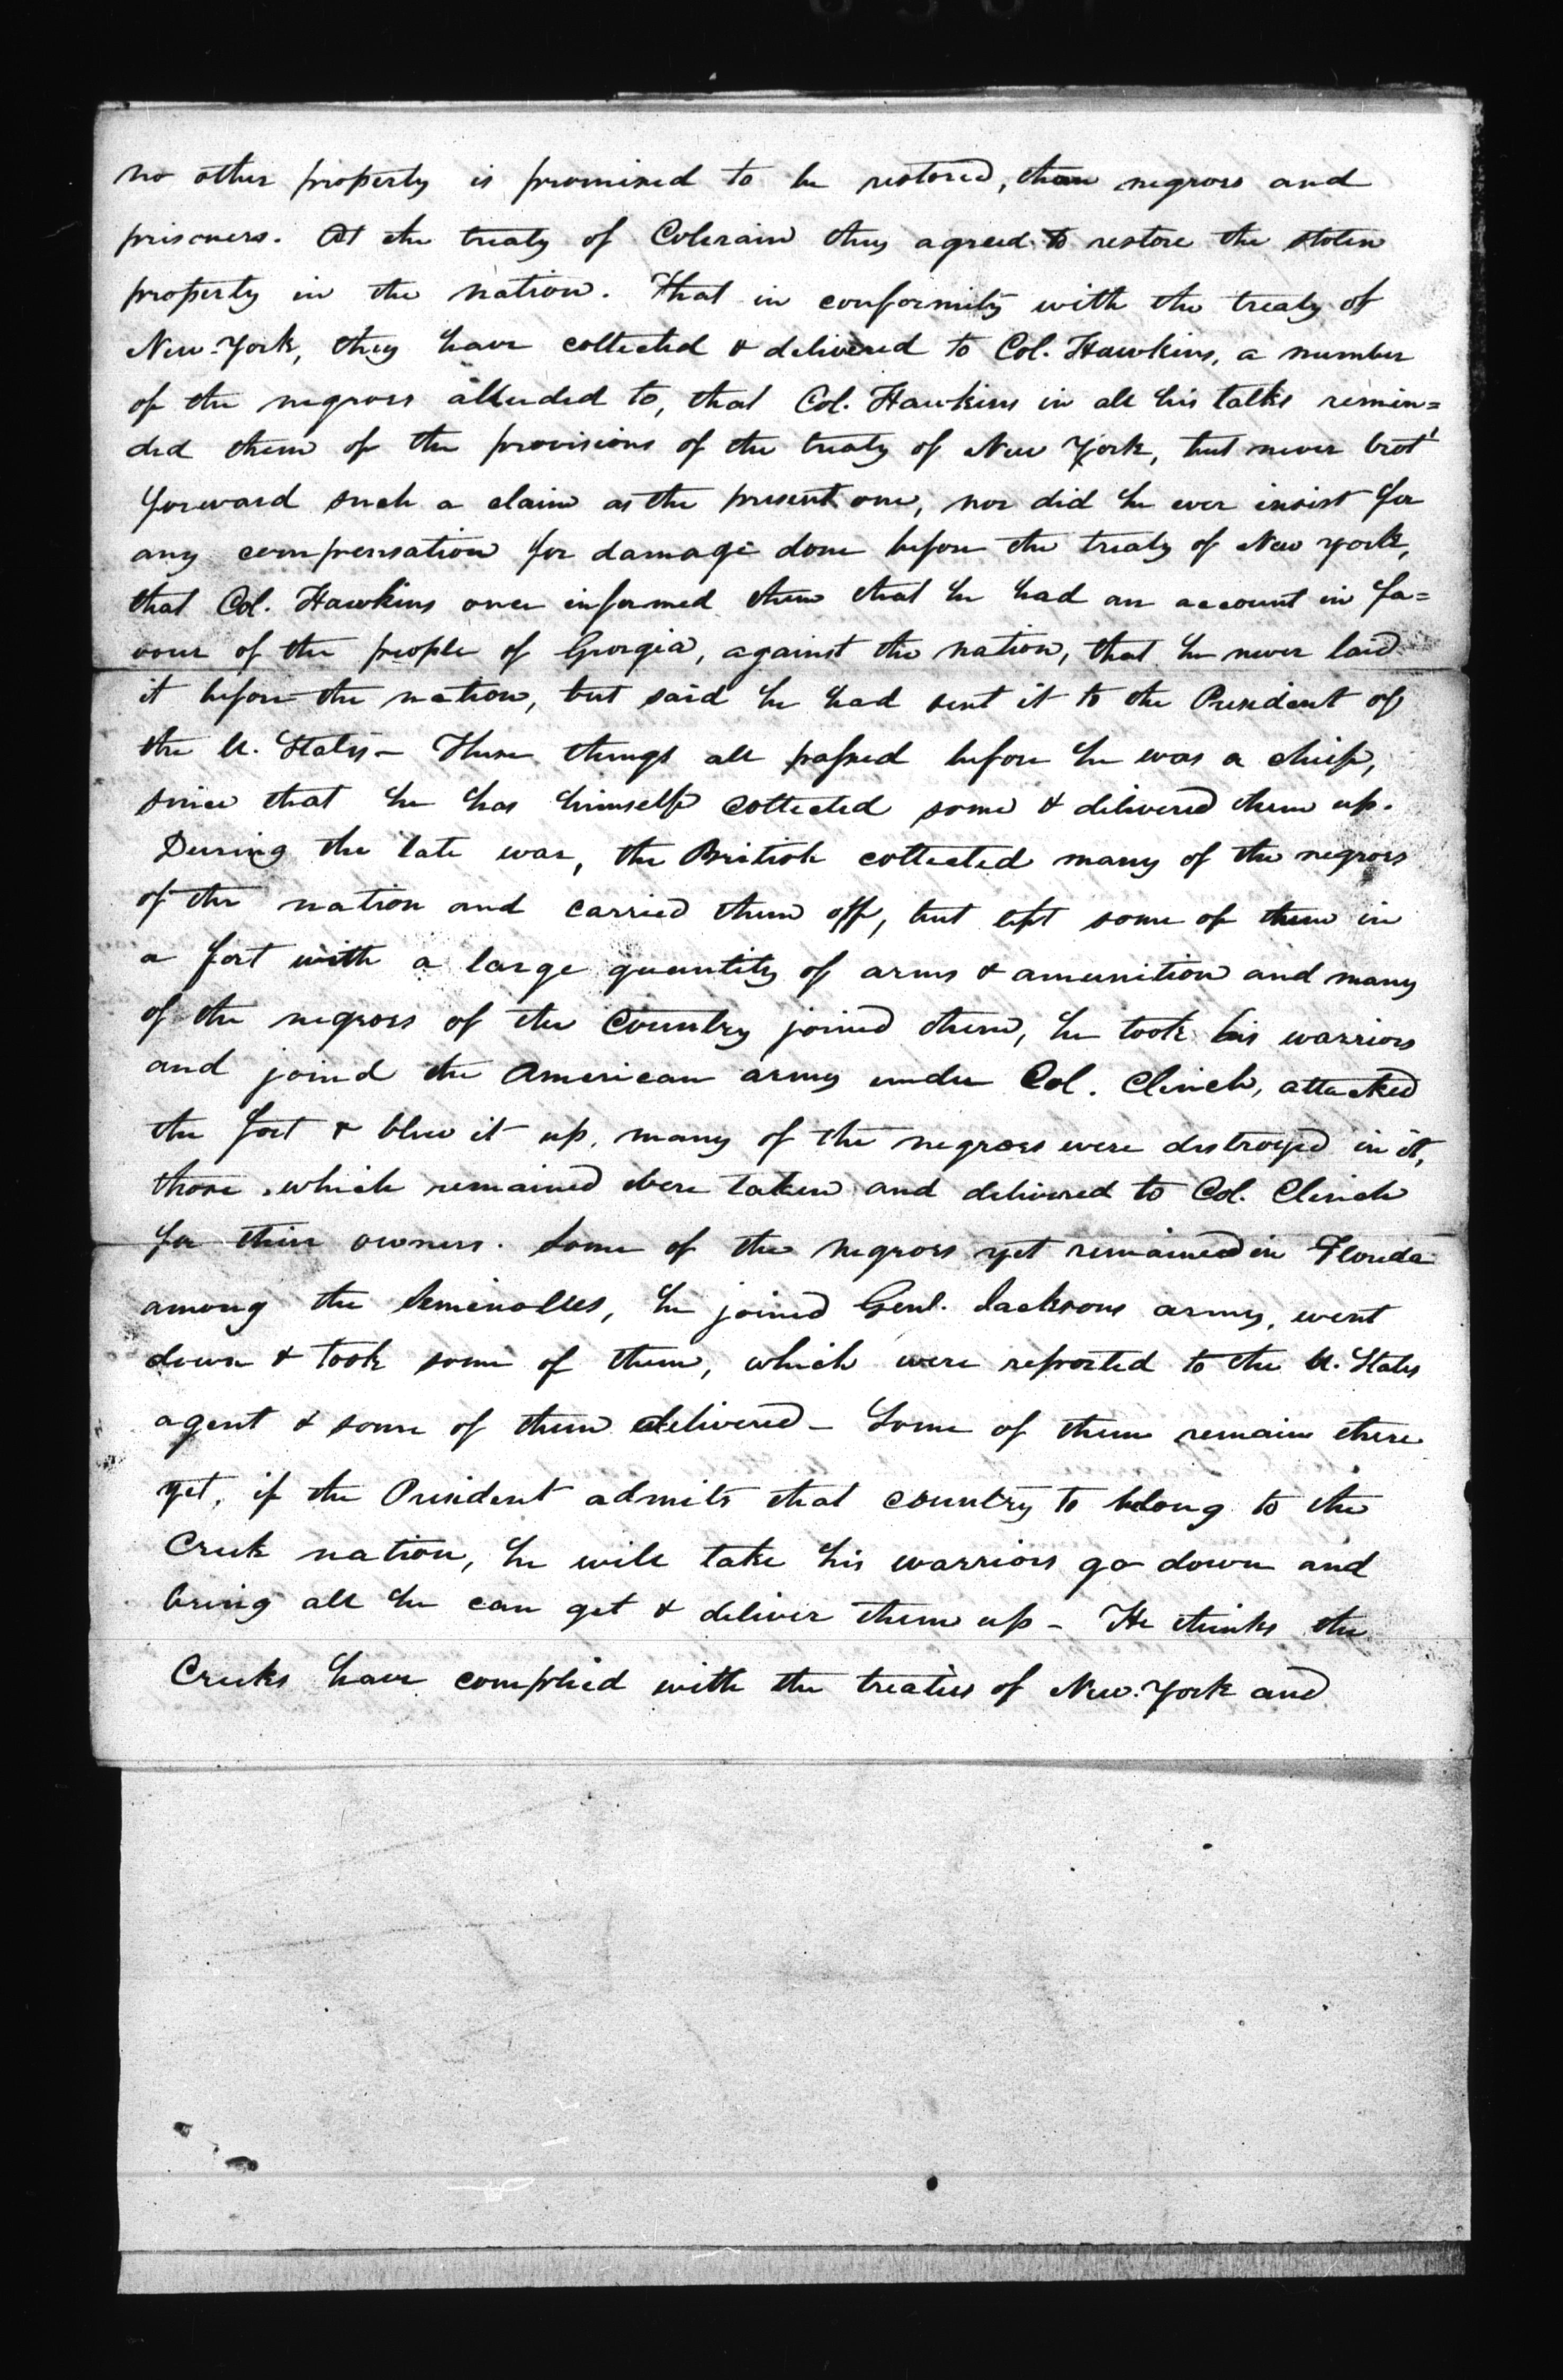 no other property is promised to be restored, than negroes and
prisoners. At the treaty of Colerain they agreed to restore the stolen
property in the nation. That in conformity with the treaty of
New-York, they have collected & delivered to Col. Hawkins, a number
of the negroes alluded to, that Col. Hawkins in all his talks remin=
ded them of the provisions of the treaty of New York, but never brot'
forward such a claim as the present one, nor did he ever insist for
any compensation for damage done before the treaty of New York,
that Col. Hawkins once informed them that he had an account in fa=
vour of the people of Georgia, against the nation, that he never laid
it before the nation, but said he had sent it to the President of
the U. States - These things all passed before he was a chief,
since that he has himself collected some & delivered them up.
During the late war, the British collected many of the negroes
of the nation and carried them off, but left some of them in
a fort with a large quantity of arms & amunition and many
of the negroes of the Country joined them, he took his warriors
and joind the American army under Col. Clinch, attacked
the fort & blew it up, many of the negroes were destroyed in it,
those which remained were taken and delivered to Col. Clinch
for their owners. Some of the negroes yet remained in Florida
among the Seminolles, he joined Genl. Jacksons army, went
down & took some of them, which were reported to the U. States
agent & some of them delivered - Some of them remain there
yet, if the President admits that country to belong to the
Creek nation, he will take his warriors go down and
bring all he can get & deliver them up - He thinks the
Creeks have complied with the treaties of New-York and